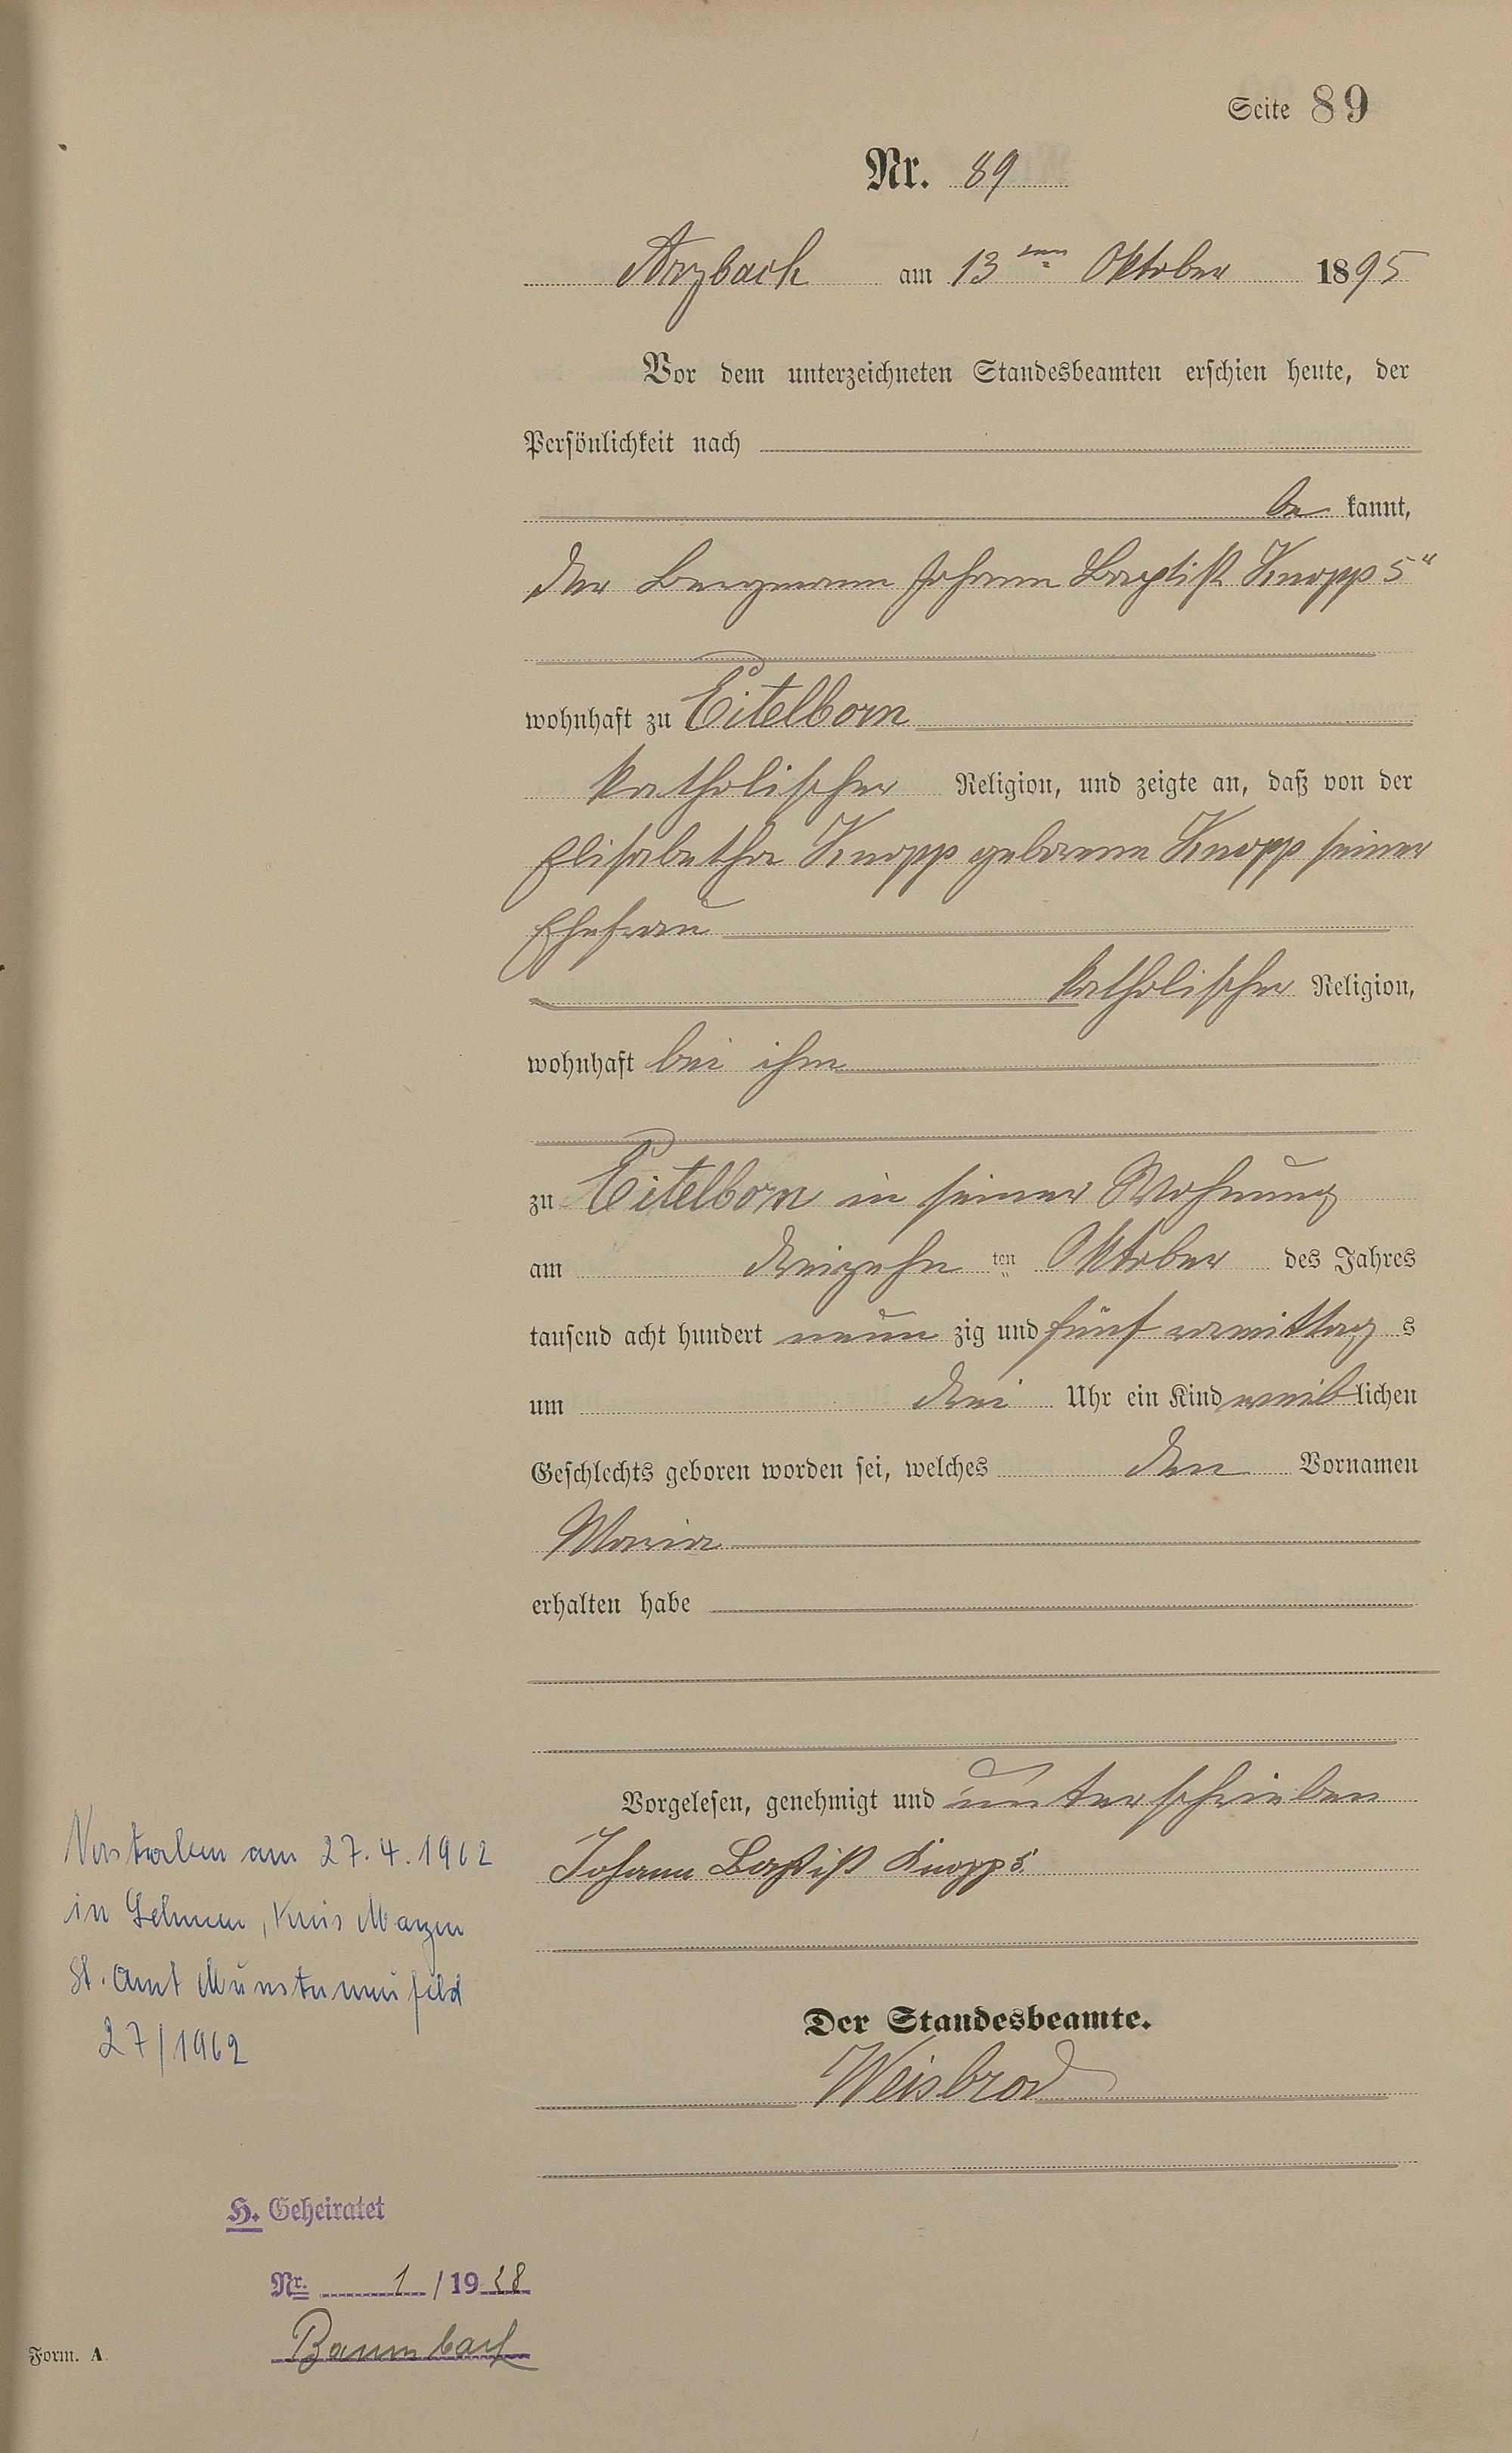 Seite 89
Nr. 89
Arzbach am 13ten Oktober 1895
Vor dem unterzeichneten Standesbeamten erschien heute, der
Persönlichkeit nach
be kannt,
der Bergmann Johann Baptist Knopp 5"
wohnhaft zu Eitelborn
katholischer Religion, und zeigte an, daß von der
Elisabetha Knopp geborene Knopp seiner
Ehefrau
katholischer Religion,
wohnhaft bei ihm
zu Eitelborn in seiner Wohnung
am dreizehn ten Oktober des Jahres
tausend acht hundert neun zig und fünf vormittag s
um drei Uhr ein Kind weib lichen
Geschlechts geboren worden sei, welches den Vornamen
Maria
erhalten habe
Vorgelesen, genehmigt und unterschrieben
Johann Baptist Knopp 5
Der Standesbeamte.
Weisbrod
Verstorben am 27.4.1962
in Lehmen, Kreis Mayen
St. Amt Münstermaifeld
27/1962
H. Geheiratet
Nr. 1 / 19 28
Baumbach
Form. A.